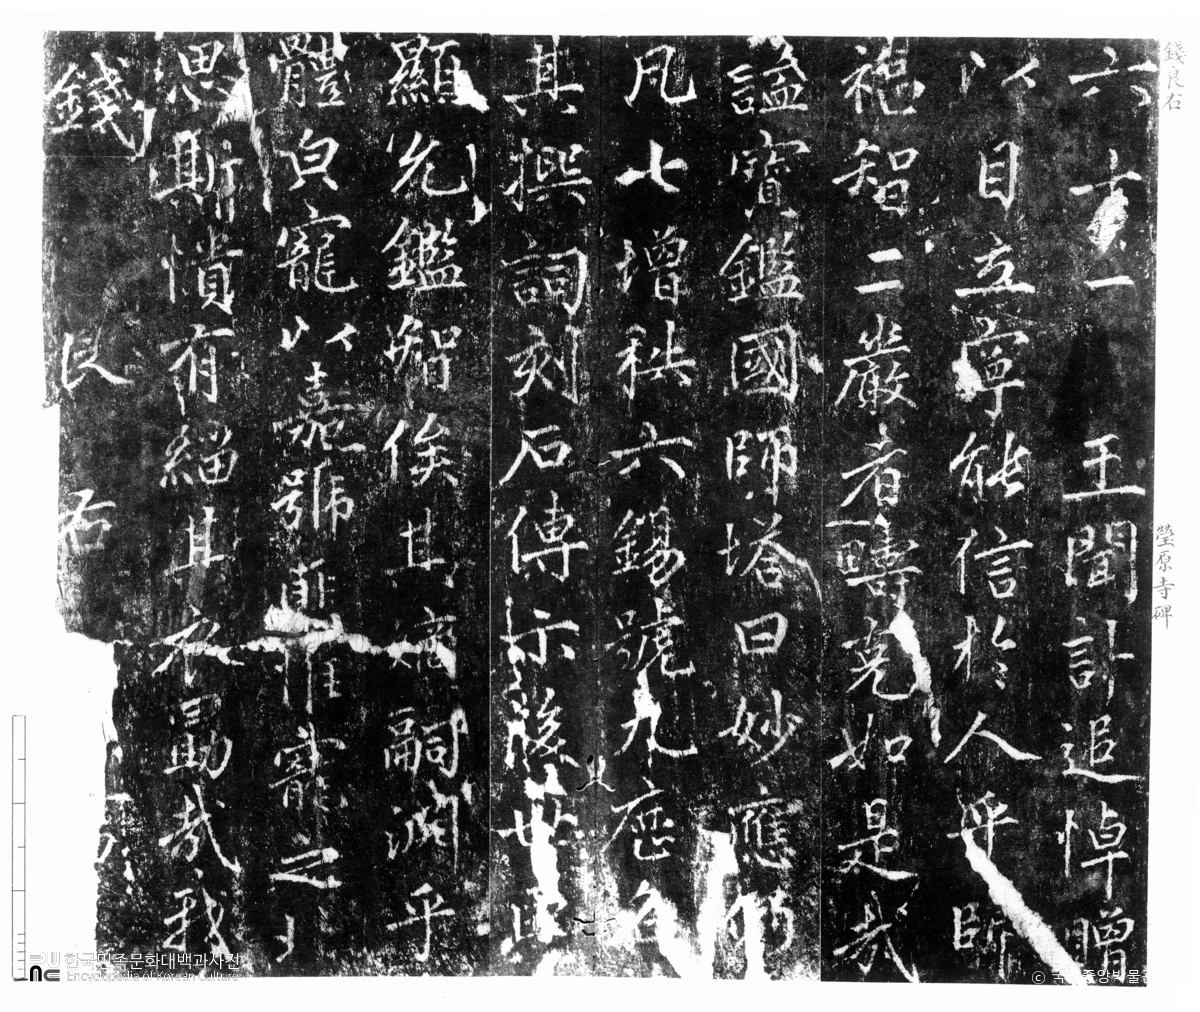 六十一 王聞訃追悼贈
以目立寧能信於人乎師
福智二嚴者疇克如是哉
謚寶鑑國師塔曰妙應
凡七增秩六錫號九
其撰詞刻石傳示後世
顯允鑑智俟其嗣淵乎
體寂寵以嘉號惟寵之
思斯憤有緇其衣勗哉我
錢
良
右
錢良右
瑩原寺碑
한국민족문화대백과사전
Encyclopedia of Korean Culture
© 국립중앙박물관